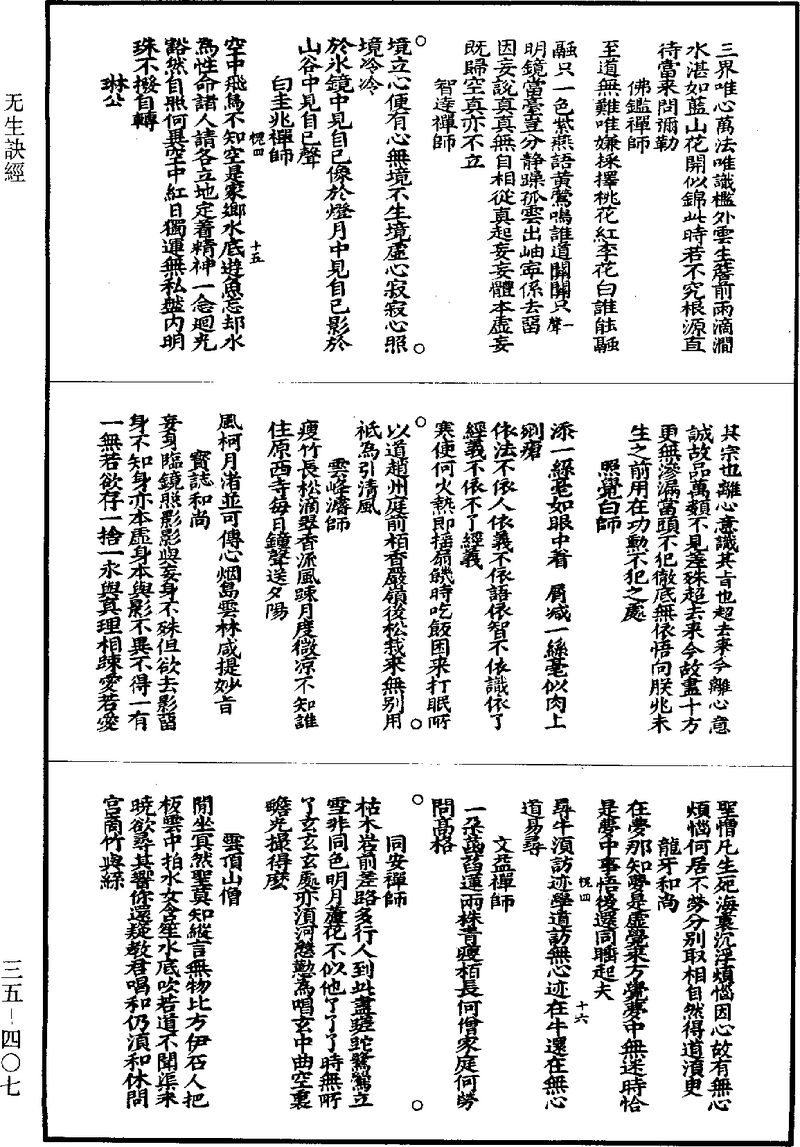 三界唯心萬法唯識檻外雲生簷前雨滴澗
水湛如藍山花開似錦此時若不究根源直
待當来問彌勒
佛鑑禪師
至道無難唯嫌揀擇桃花紅李花白誰能融
融只一色紫燕語黄鶯鳴誰道關關只一聲
明鏡當臺豈分静躁孤雲出岫寧係去留
因妄說真真無自相從真起妄妄體本虛妄
既歸空真亦不立
智達禪師
境立心便有心無境不生境虛心寂寂心照
境冷冷
於氷鏡中見自己像於燈月中見自己影於
山谷中見自己聲
白圭兆禪師
空中飛鳥不知空是家鄉水底遊魚忘却水
為性命諸人請各立地定着精神一念廻光
豁然自照何異空中紅日獨運無私盤内明
珠不撥自轉
琳公
其宗也離心意識其旨也超去来今離心意
誠故品萬類不見差殊超去来今故盡十方
更無滲漏當頭不犯徹底無依悟向朕兆未
生之前用在功勳不犯之處
照覺白師
添一絲毫如眼中着屑减一絲毫似肉上
剜瘡
依法不依人依義不依語依智不依識依了
經義不依不了經義
寒便向火熱即揺扇饑時吃飯困来打眠所
以道趙州庭前栢香嚴嶺後松栽来無别用
祇為引清風
雲峰濬師
瘦竹長松滴翠香派風踈月度微凉不知誰
住原西寺每日鐘聲送夕陽
風柯月渚並可傳心烟島雲林咸提妙旨
寶誌和尚
妄身臨鏡照影影與妄身不殊但欲去影留
身不知身亦本虛身本與影不異不得一有
一無若欲存一捨一永與真理相踈愛若愛
聖憎凡生死海裏沉浮煩惱因心故有無心
煩惱何居不勞分别取相自然得道湏臾
龍牙和尚
在夢那知夢是虛覺来方覺夢中無迷時恰
是夢中事悟後還同睡起夫
尋牛湏訪迹學道訪無心迹在牛還在無心
道易尋
文益禪師
一朵菡萏蓮兩株青瘦栢長向僧家庭何勞
問高格
同安禪師
枯木岩前差路多行人到此盡蹉跎鷺鷥立
雪非同色明月蘆花不似他了了了時無所
了玄玄玄處亦湏訶慇懃為唱玄中曲空裏
蟾光撮得麼
雲頂山僧
閒坐冥然聖莫知縱言無物比方伊石人把
板雲中拍木女含笙水底吹若道不聞渠未
曉欲尋其響你還疑教君唱和仍湏和休問
宫商竹與絲
槐四
十五
槐四
十六
无生訣經
三五－四〇七